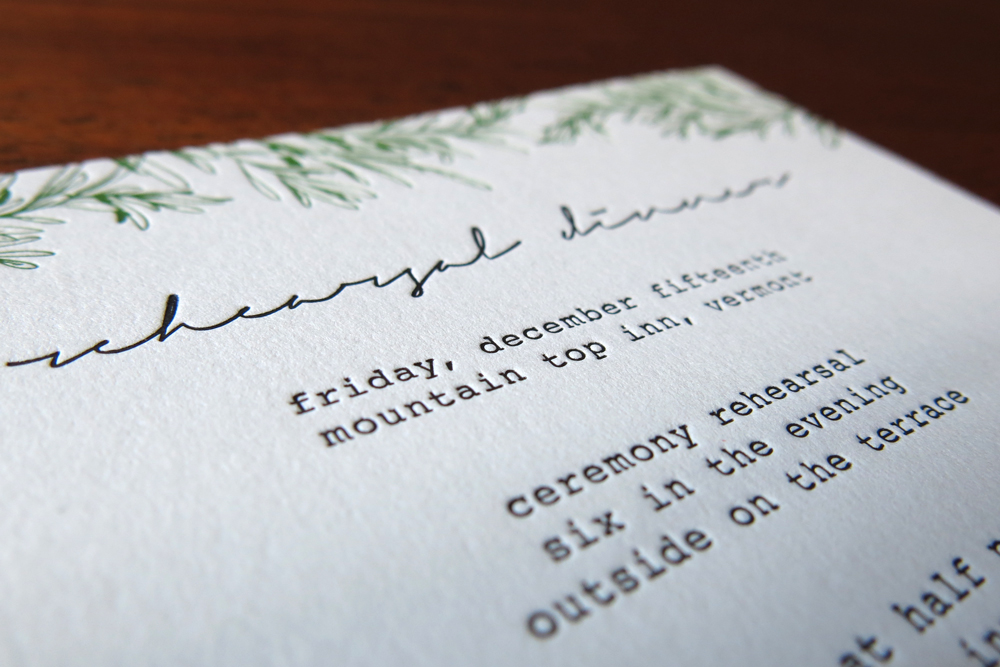 rehearsal dinner
friday, december fifteenth
mountain top inn, vermont
ceremony rehearsal
six in the evening
outside on the terrace
at half